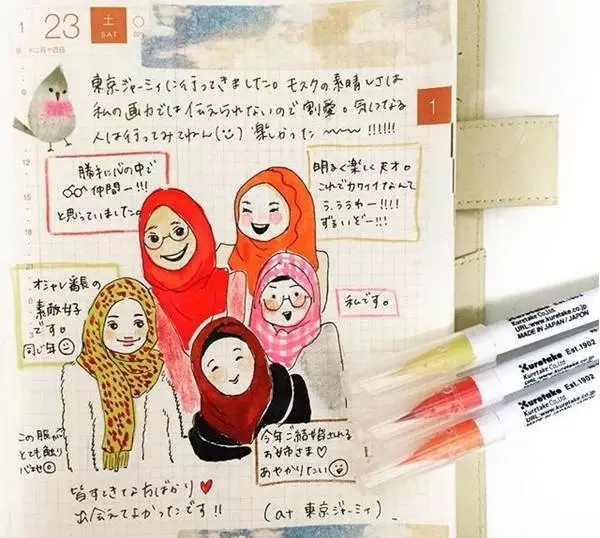 1
23
土
SAT
十二月十四日
東京ジャーミィに行ってきました。モスクの素晴しさは
私の画力では伝えられないので割愛。気になる
人は行ってみてねん(¨) 楽しかった〜〜!!!!!!
1
勝手に心の中で
仲間ー!!!
と思っていました。
明るく楽しく天才。
これでカワイイなんて
うぅうわー!!!!
ずるいどー!!!
オシャレ番長の
素敵女子
です。
同じ年
私です。
この服が
とても触り
今年ご結婚される
お姉さま♡
あやかりたい
皆すてきな方ばかり♥
出会えてよかったです!!
(at 東京ジャーミィ)
Kuretake Est.1902
Kuretake Co.,Ltd
URL:www.kuretake.co.jp
MADE IN JAPAN/JAPON
Kuretake Est.1902
Kuretake Co.,Ltd
URL:www.kuretake
Kuretake Est.1902
Kuretake Co.,Ltd
URL:www.kuretake